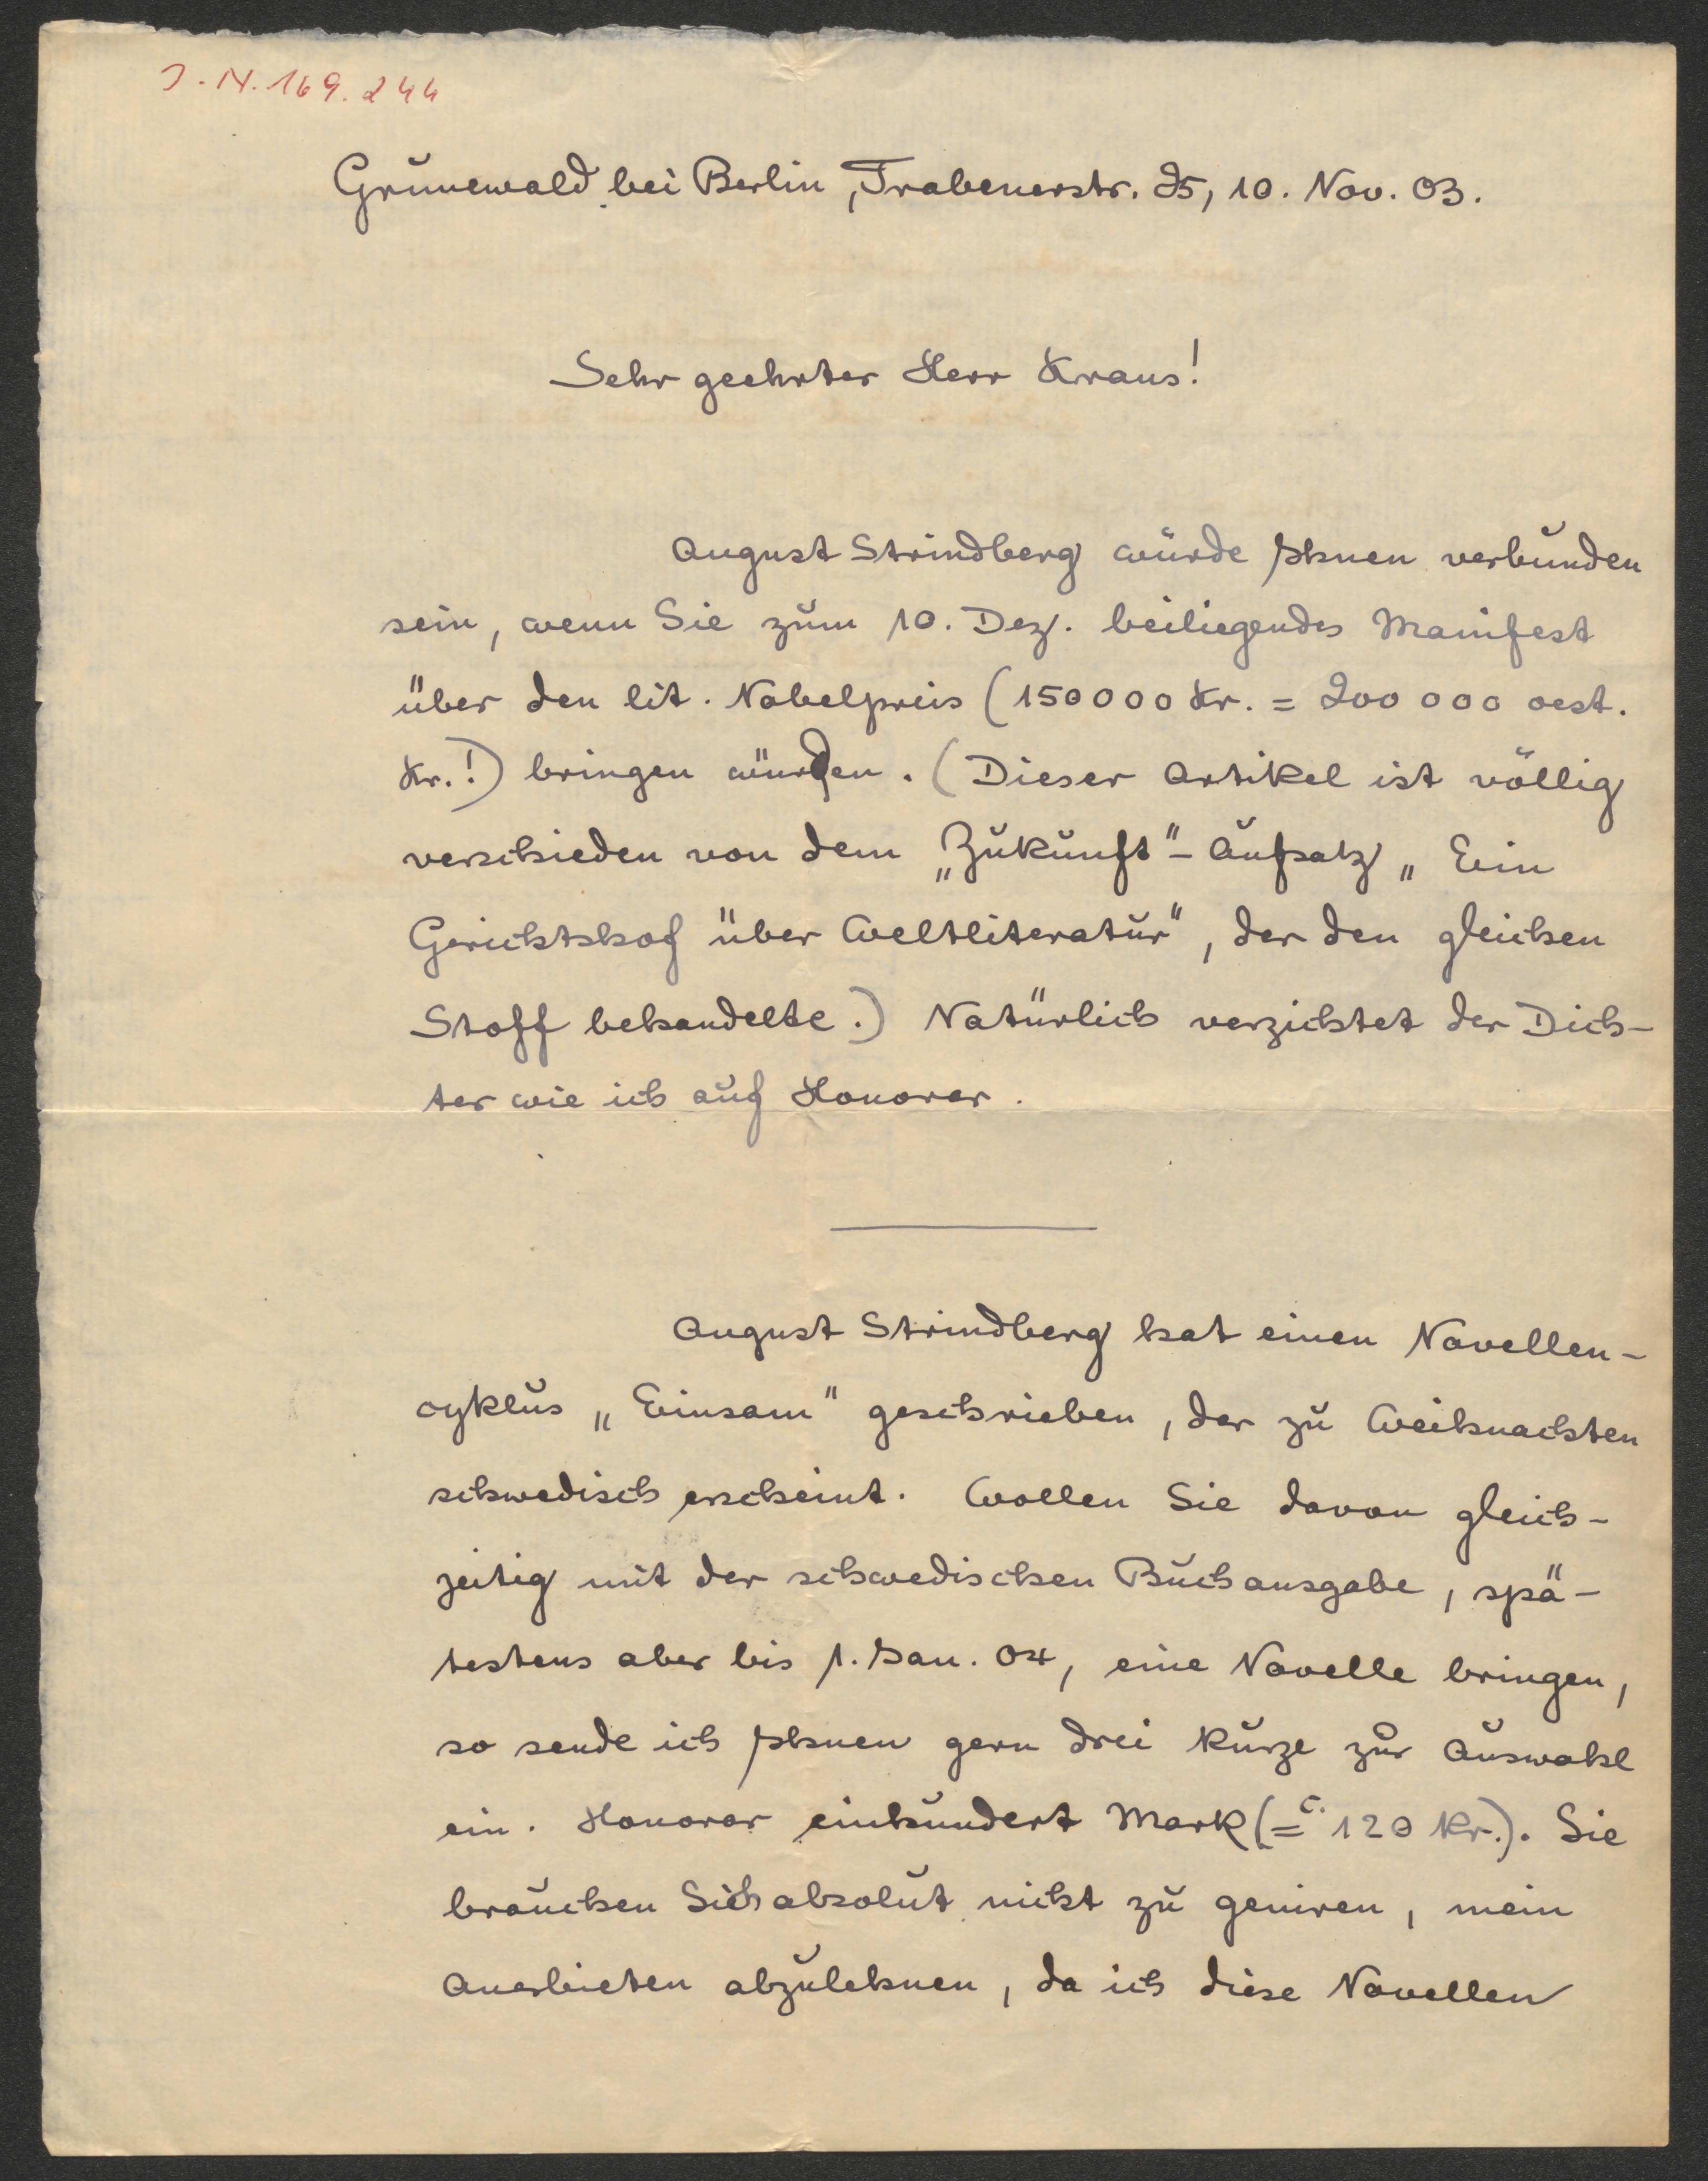 J.N. 169.244
Grunewald bei Berlin, Trabenerstr. 25, 10. Nov. 03.
Sehr geehrter Herr Kraus!
August Strindberg würde Ihnen verbunden
sein, wenn Sie zum 10. Dez. beiliegendes Manifest
über den lit. Nobelpreis (150000 Kr. = 200 000 oest.
Kr.!) bringen würden. (Dieser Artikel ist völlig
verschieden von dem „Zukunft"-Aufsatz „Ein
Gerichtshof über Weltliteratur", der den gleichen
Stoff behandelte.) Natürlich verzichtet der Dich-
ter wie ich auf Honorar.
August Strindberg hat einen Novellen-
cyklus „Einsam" geschrieben, der zu Weihnachten
schwedisch erscheint. Wollen Sie davon gleich-
zeitig mit der schwedischen Buchausgabe, spä-
testens aber bis 1. Jan. 04, eine Novelle bringen,
so sende ich Ihnen gern drei kurze zur Auswahl
ein. Honorar einhundert Mark (= c. 120 Kr.). Sie
brauchen Sich absolut nicht zu geniren, mein
Anerbieten abzulehnen, da ich diese Novellen